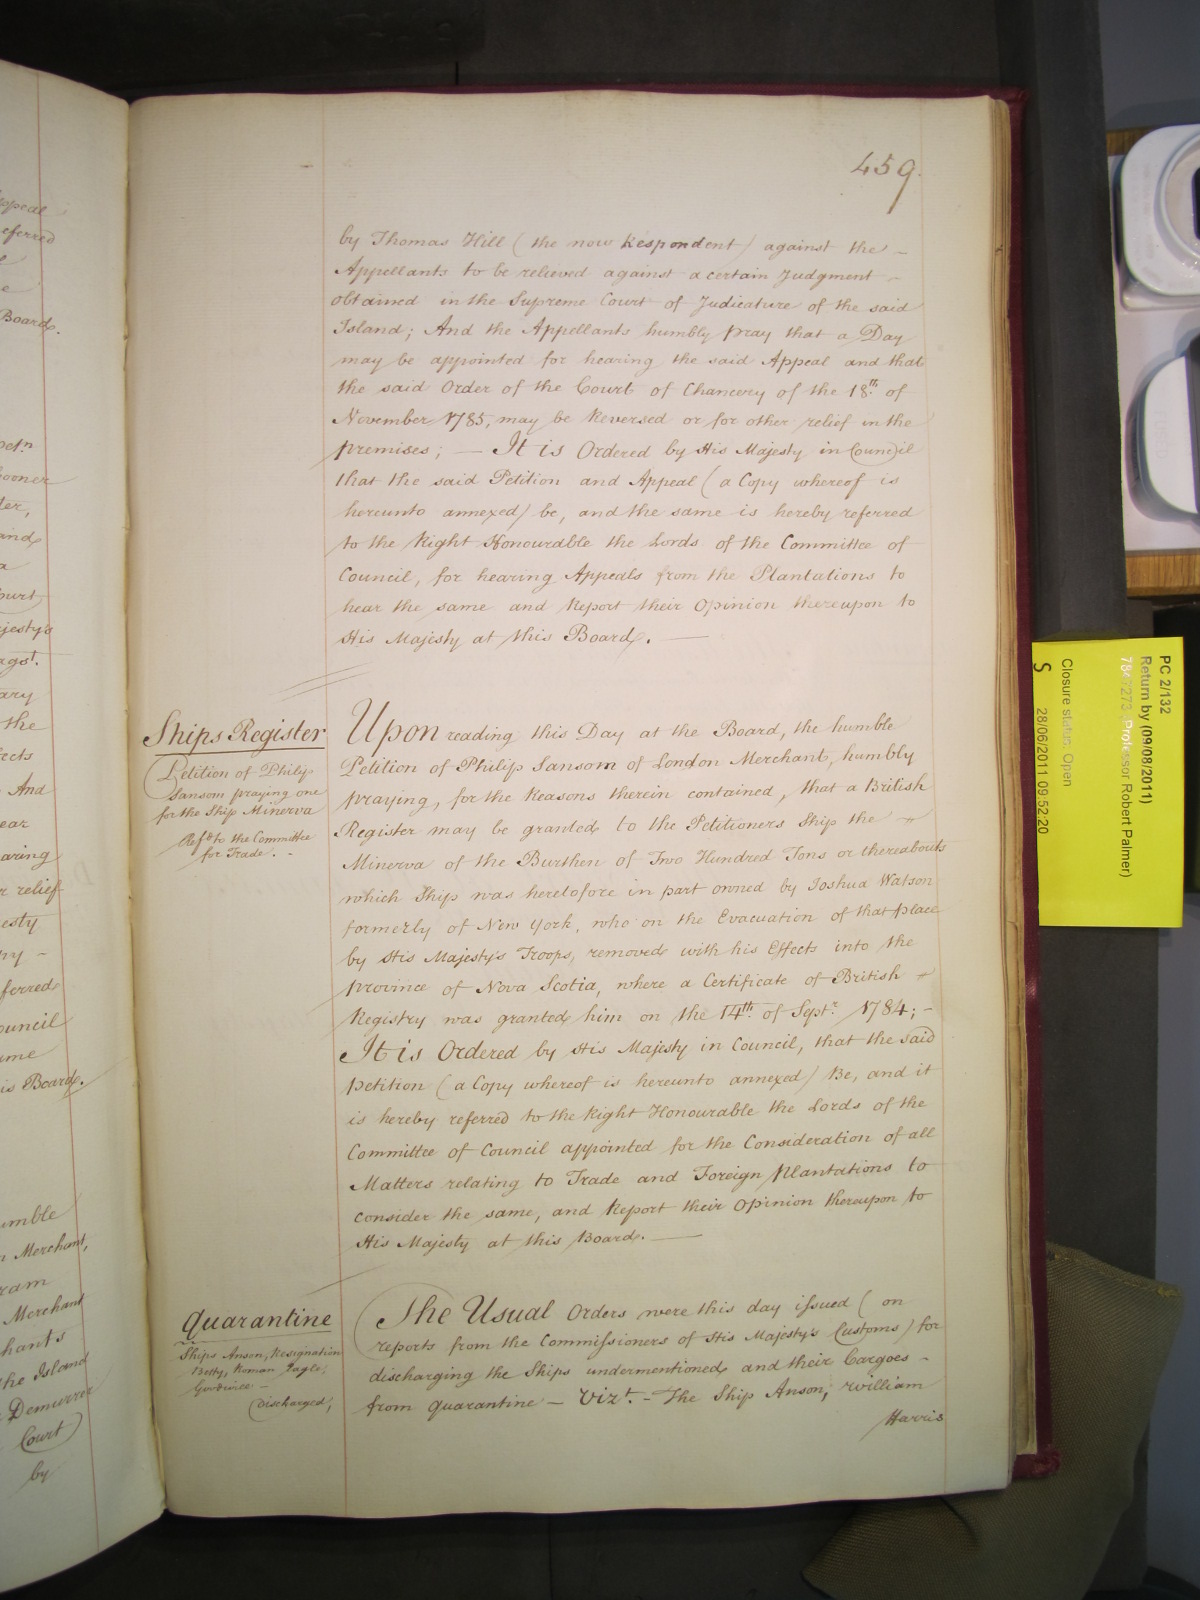 459.
by Thomas Hill (the now Respondent) against the
Appellants to be relieved against a certain Judgment
obtained in the Supreme Court of Judicature of the said
Island; And the Appellants humbly pray that a Day
may be appointed for hearing the said Appeal and that
the said Order of the Court of Chancery of the 18th. of
November 1785, may be Reversed or for other relief in the
premises; — It is Ordered by His Majesty in Council
that the said Petition and Appeal (a Copy whereof is
hereunto annexed) be, and the same is hereby referred
to the Right Honourable the Lords of the Committee of
Council, for hearing Appeals from the Plantations to
hear the same and Report their Opinion thereupon to
His Majesty at this Board. —
Ships Register
Petition of Philip
Sansom praying one
for the Ship Minerva
Refd. to the Committee
for Trade. -
Upon reading this Day at the Board, the humble
Petition of Philip Sansom of London Merchant, humbly
praying, for the Reasons therein contained, that a British
Register may be granted to the Petitioners Ship the
Minerva of the Burthen of Two Hundred Tons or thereabouts
which Ship was heretofore in part owned by Joshua Watson
formerly of New York, who on the Evacuation of that place
by His Majesty's Troops, removed with his Effects into the
Province of Nova Scotia, where a Certificate of British
Registry was granted him on the 14th. of Septr. 1784; -
It is Ordered by His Majesty in Council, that the said
Petition (a Copy whereof is hereunto annexed) Be, and it
is hereby referred to the Right Honourable the Lords of the
Committee of Council appointed for the Consideration of all
Matters relating to Trade and Foreign Plantations to
consider the same, and Report their Opinion thereupon to
His Majesty at this Board. —
Quarantine
Ships Anson, Resignation
Betty, Roman Eagle,
discharged,
The Usual Orders were this day issued (on
reports from the Commissioners of His Majesty's Customs) for
discharging the Ships undermentioned and their Cargoes -
from Quarantine — Vizt. - The Ship Anson, William
Harris
PC 2/132
Return by (09/08/2011)
7847273 (Professor Robert Palmer)
Closure status: Open
S
28/06/2011 09:52:20
Board.
relief
Merchant,
Merchant
the Island
Demurrer
Court)
by